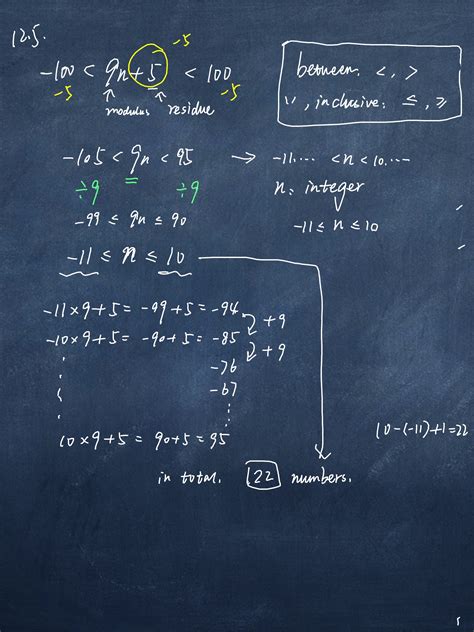 12.5.
-5
-100 < 9n+5 < 100
-5 -5
modulus residue
between: <, >
〃, inclusive: ≤, ≥
-105 < 9n < 95 → -11.... < n < 10....
÷9 ÷9
n: integer
-99 ≤ 9n ≤ 90
-11 ≤ n ≤ 10
-11 ≤ n ≤ 10
-11×9+5 = -99+5 = -94
+9
-10×9+5 = -90+5 = -85
+9
-76
-67
10×9+5 = 90+5 = 95
10-(-11)+1=22
in total. 22 numbers.